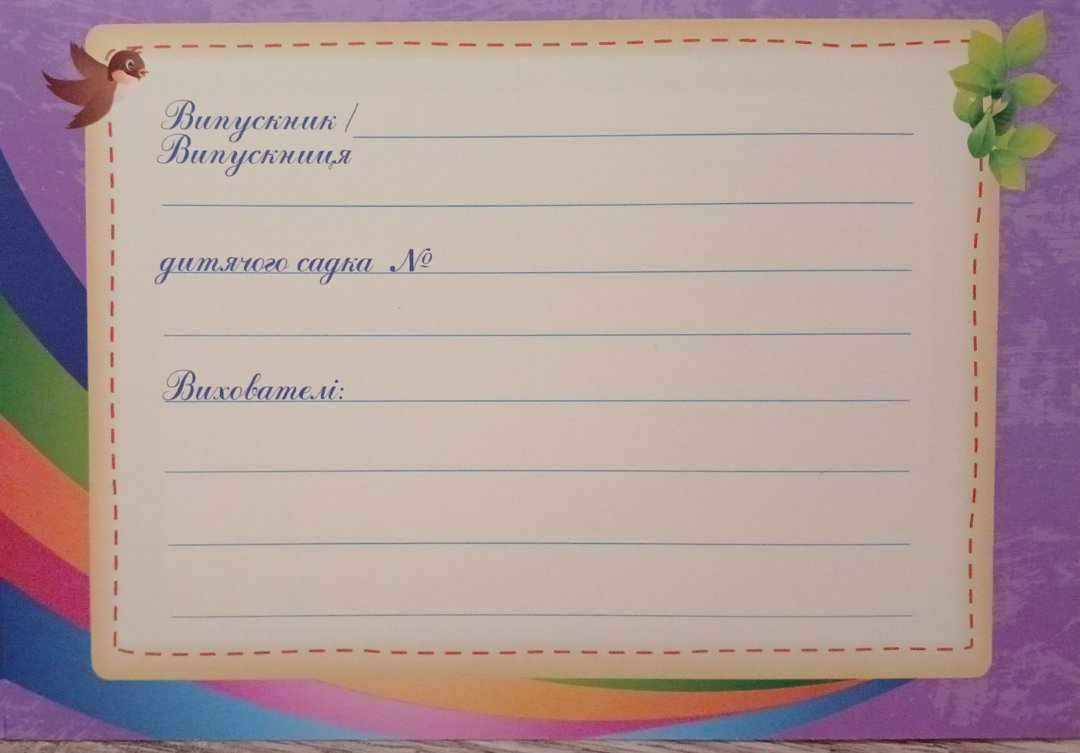 Випускник /
Випускниця
дитячого садка №
Вихователі: